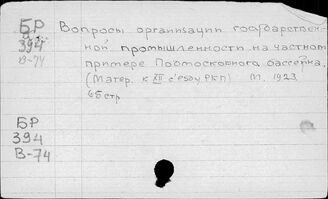 БР
394
В-74
Вопросы организации государствен-
ной промышленности на частном
примере Подмосковного бассейна.
(Матер. к XII с'езду РКП) М. 1923
стр.
БР
394
В-74